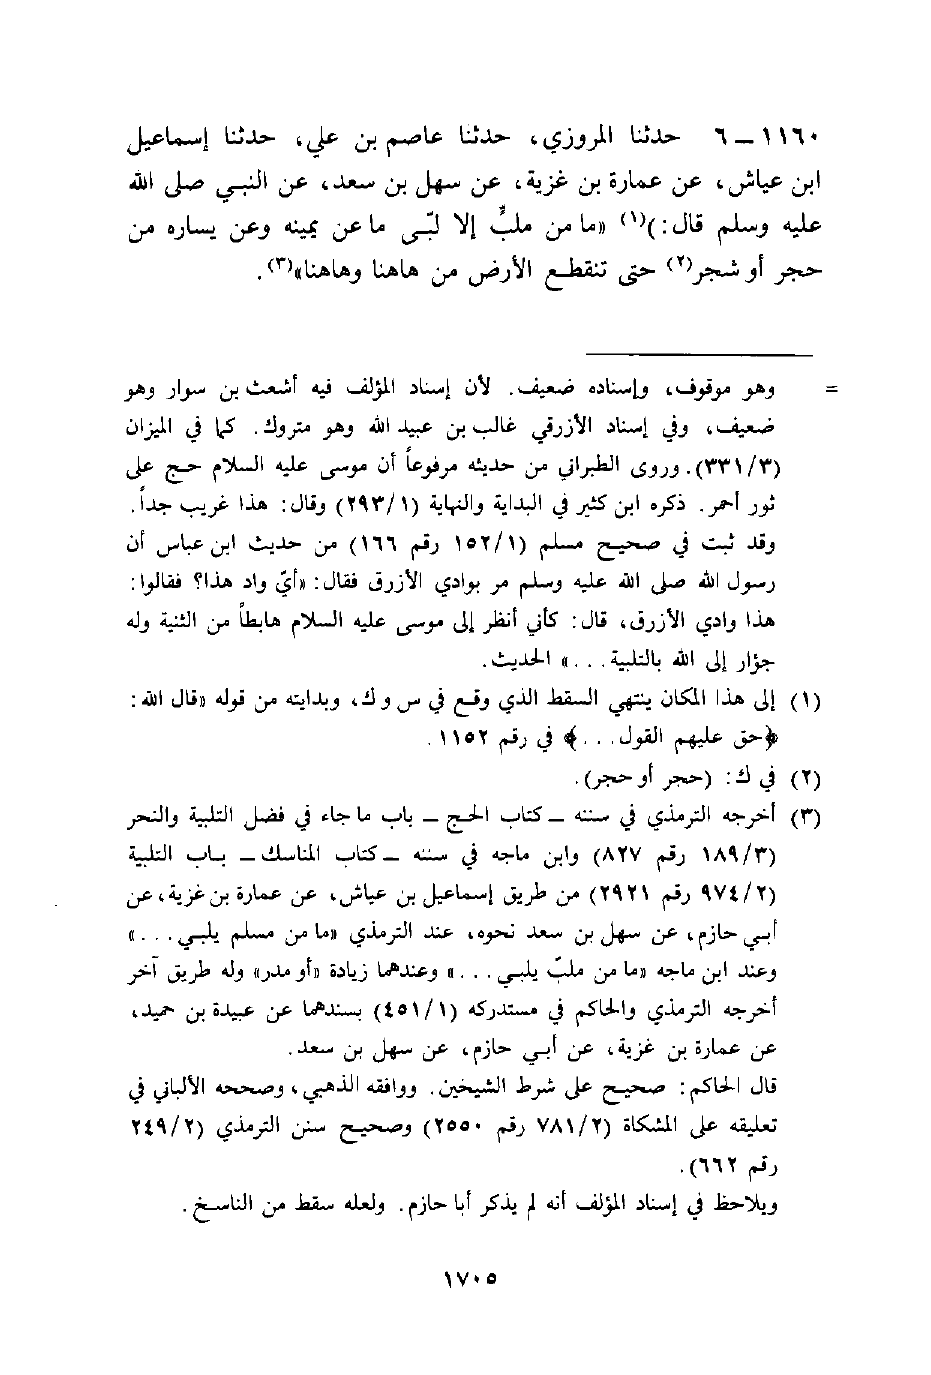 ١١٦٠ – ٦ حدثنا المروزي، حدثنا عاصم بن علي، حدثنا إسماعيل
ابن عياش، عن عمارة بن غزية، عن سهل بن سعد، عن النبي صلى الله
عليه وسلم قال:)(١) «ما من ملبٍّ إلا لبّى ما عن يمينه وعن يساره من
حجر أو شجر(٢) حتى تنقطع الأرض من هاهنا وهاهنا»(٣).
= وهو موقوف، وإسناده ضعيف. لأن إسناد المؤلف فيه أشعث بن سوار وهو
ضعيف، وفي إسناد الأزرقي غالب بن عبيد الله وهو متروك. كما في الميزان
(٣/٣٣١). وروى الطبراني من حديثه مرفوعاً أن موسى عليه السلام حج على
ثور أحمر. ذكره ابن كثير في البداية والنهاية (١/٢٩٣) وقال: هذا غريب جداً.
وقد ثبت في صحيح مسلم (١/١٥٢ رقم ١٦٦) من حديث ابن عباس أن
رسول الله صلى الله عليه وسلم مر بوادي الأزرق فقال: «أيّ واد هذا؟ فقالوا:
هذا وادي الأزرق، قال: كأني أنظر إلى موسى عليه السلام هابطاً من الثنية وله
جؤار إلى الله بالتلبية...» الحديث.
(١) إلى هذا المكان ينتهي السقط الذي وقع في س و ك، وبدايته من قوله «قال الله:
﴿حق عليهم القول...﴾ في رقم ١١٥٢.
(٢) في ك: (حجر أو حجر).
(٣) أخرجه الترمذي في سننه – كتاب الحج – باب ما جاء في فضل التلبية والنحر
(٣/١٨٩ رقم ٨٢٧) وابن ماجه في سننه – كتاب المناسك – باب التلبية
(٢/٩٧٤ رقم ٢٩٢١) من طريق إسماعيل بن عياش، عن عمارة بن غزية، عن
أبي حازم، عن سهل بن سعد نحوه، عند الترمذي «ما من مسلم يلبي...»
وعند ابن ماجه «ما من ملبّ يلبي...» وعندهما زيادة «أو مدر» وله طريق آخر
أخرجه الترمذي والحاكم في مستدركه (١/٤٥١) بسندهما عن عبيدة بن حميد،
عن عمارة بن غزية، عن أبي حازم، عن سهل بن سعد.
قال الحاكم: صحيح على شرط الشيخين. ووافقه الذهبي، وصححه الألباني في
تعليقه على المشكاة (٢/٧٨١ رقم ٢٥٥٠) وصحيح سنن الترمذي (٢/٢٤٩
رقم ٦٦٢).
ويلاحظ في إسناد المؤلف أنه لم يذكر أبا حازم. ولعله سقط من الناسخ.
١٧٠٥